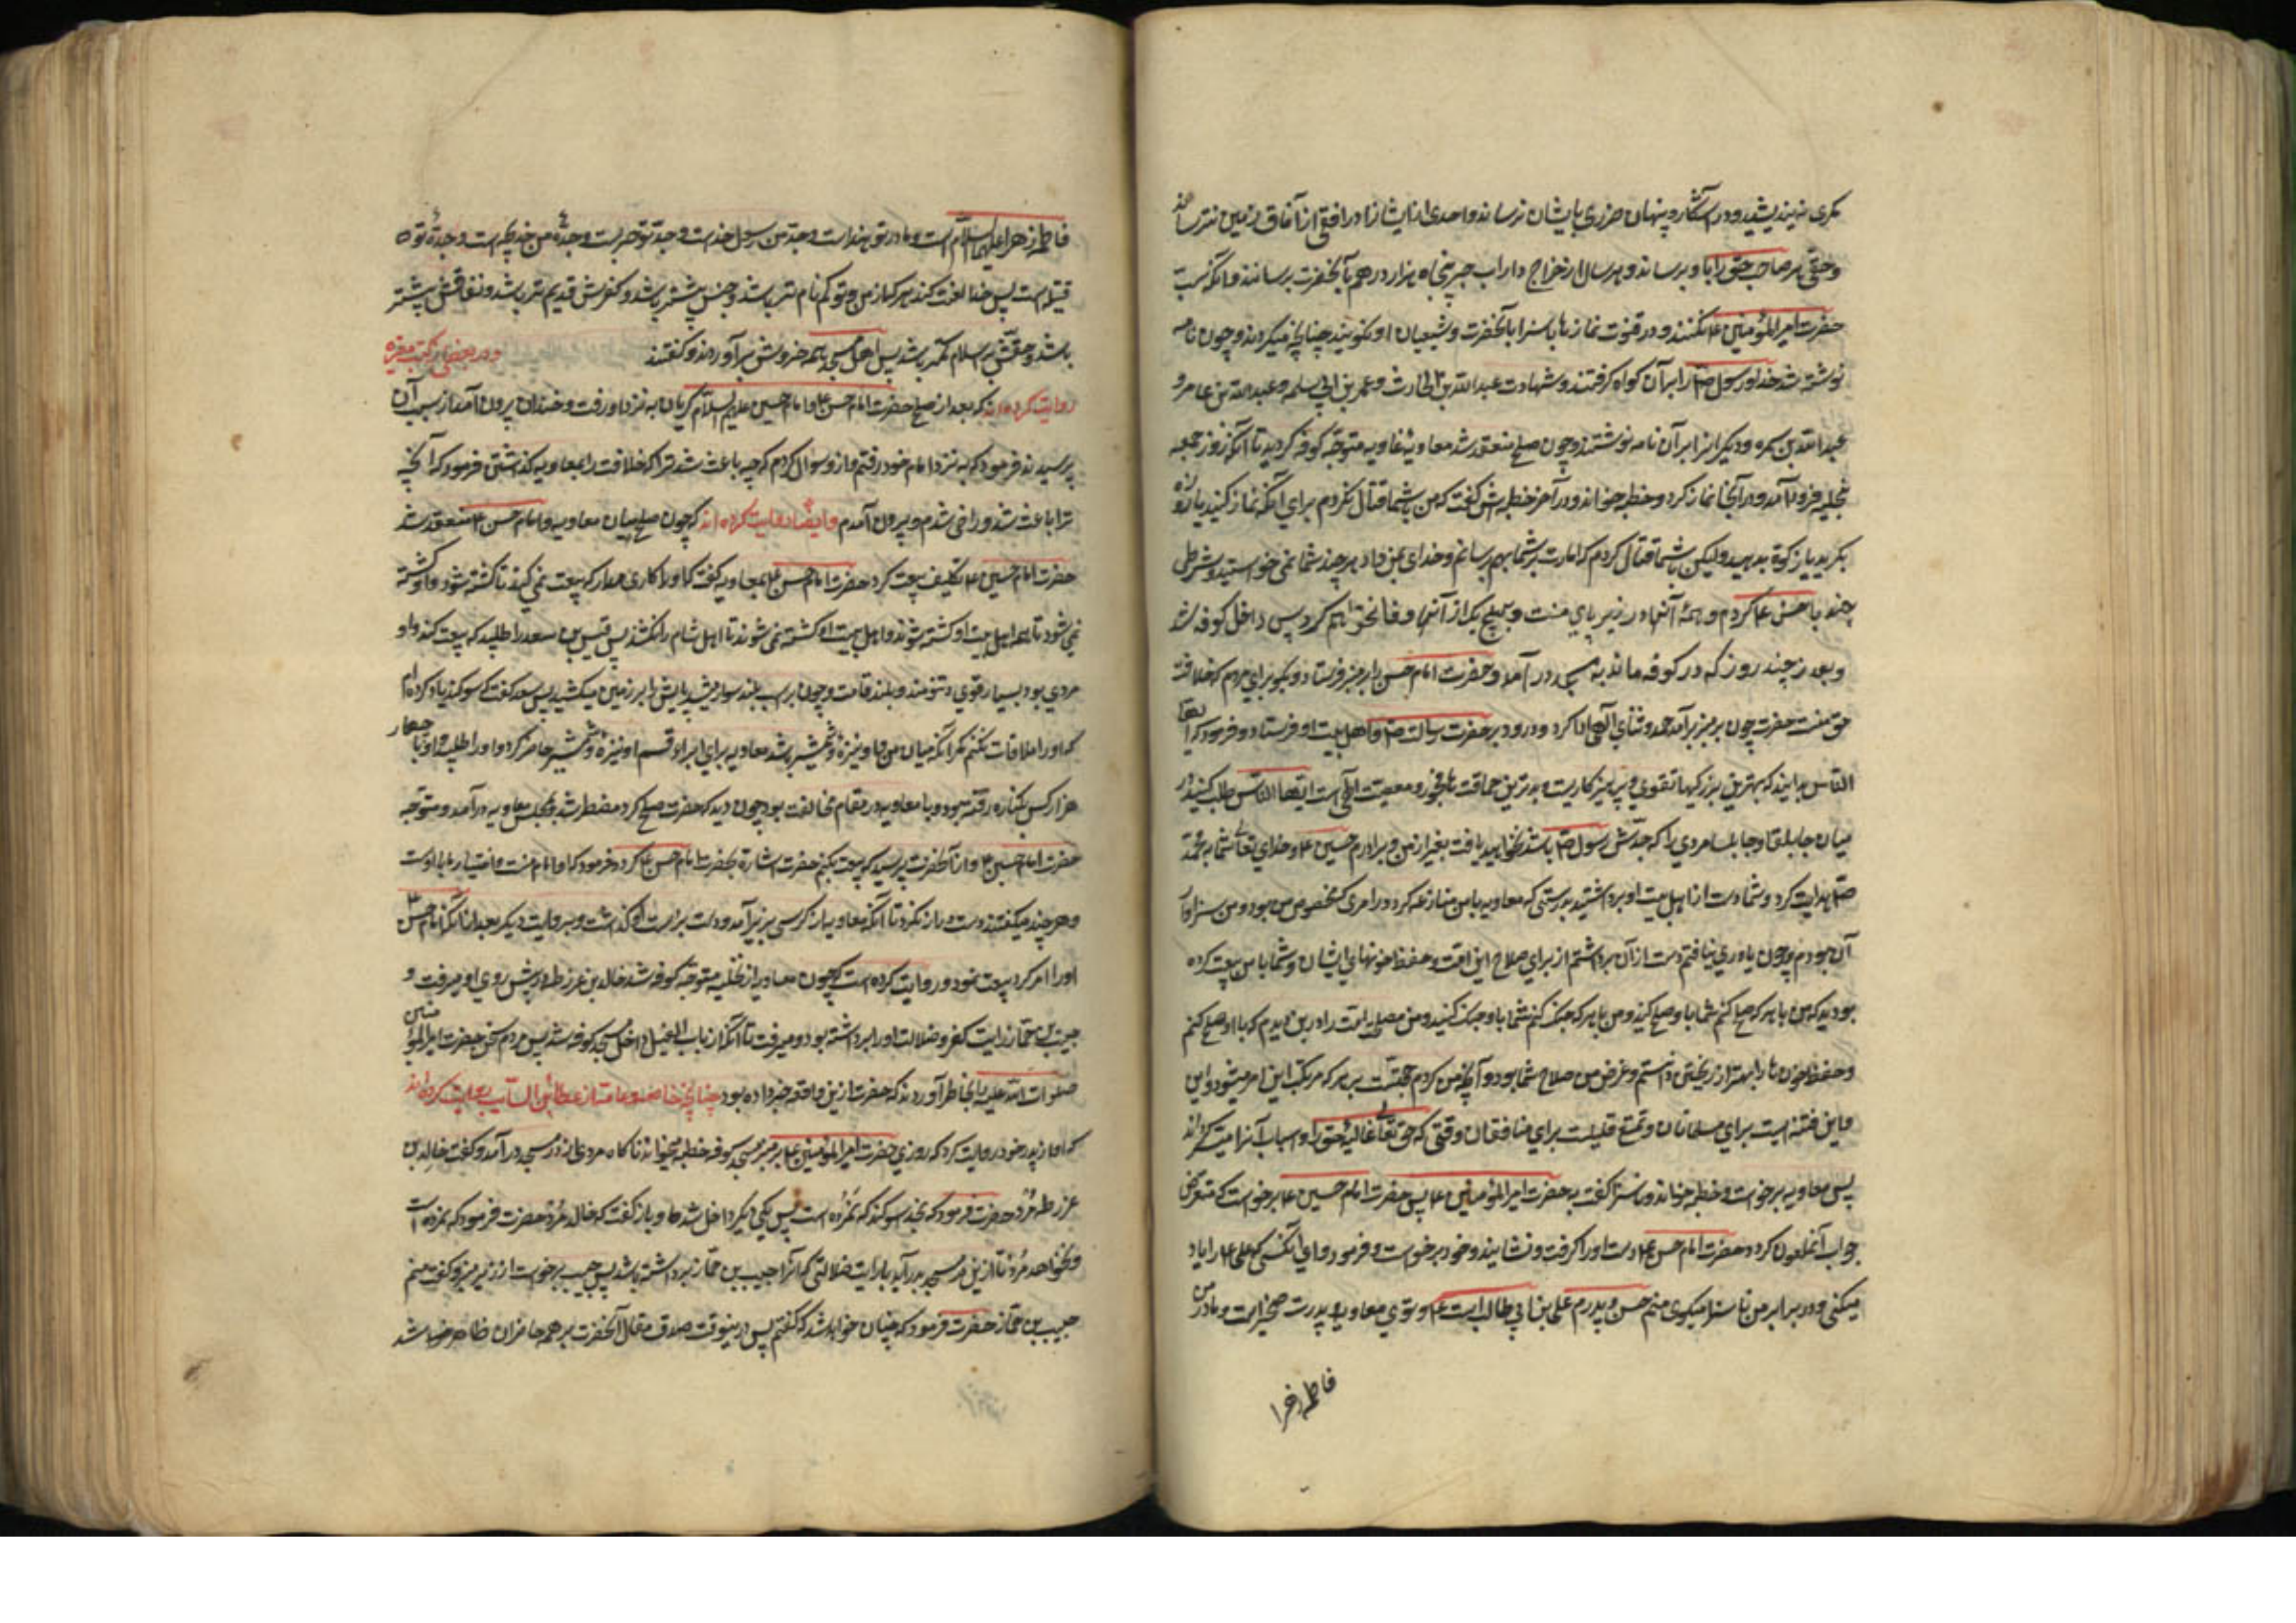 مکری نیندیشید و در آشکار و پنهان ضرری بایشان نرساند و احدی از ایشانرا در افقی از آفاق زمین نترساند
و حق هر صاحب حق را باو برساند و هر سال از خراج داراب جرد پنجاه هزار درهم بآنحضرت برسانند و آنکه سب
حضرت امیرالمؤمنین ع نکنند و در قنوت نمازها ناسزا بآنحضرت و شیعیان او نگویند چنانچه میکردند و چون نامه
نوشته شد خدا و رسول ص را بر آن گواه گرفتند و شهادت عبدالله بن الحارث و عمر بن ابی سلمه و عبدالله بن عامر و
عبدالله بن سمره و دیگرانرا بر آن نامه نوشتند و چون صلح منعقد شد معاویه غاویه متوجه کوفه گردید تا آنکه روز جمعه
بنخیله فرود آمد و در آنجا نماز کرد و خطبه خواند و در آخر خطبه اش گفت که من با شما قتال نکردم برای آنکه نماز کنید یا روزه
بگیرید یا زکوة بدهید ولیکن با شما قتال کردم که امارت بر شما بهم رسانم و خدای بمن داد هر چند شما نمی خواستید و شرطی
چند با حسن ع کردم و همۀ آنها در زیر پای منست و بهیچ یک از آنها وفا نخواهم کرد پس داخل کوفه شد
و بعد از چند روز که در کوفه ماند به مسجد در آمد و حضرت امام حسن را بر منبر فرستاد و گفت بگو برای مردم که خلافت
حق منست حضرت چون بر منبر بر آمد حمد و ثنای الهی ادا کرد و درود بر حضرت رسالت ص و اهل بیت او فرستاد و فرمود که ایها
الناس بدانید که بهترین زیرکیها تقوی و پرهیزکاریست و بدترین حماقت ها فجور و معصیت الهی است ایها الناس طلب کنید در
میان جابلقا و جابلسا مردی را که جدش رسول ص باشد نخواهید یافت بغیر از من و برادرم حسین ع و خدای تعالی شما را بمحمد
ص هدایت کرد و شما دست از اهل بیت او برداشتید بدرستی که معاویه با من منازعه کرد در امری که مخصوص من بود و من سزاوار
آن بودم و چون یاوری نیافتم دست از آن برداشتم از برای صلاح این امت و حفظ خونهای ایشان و شما با من بیعت کرده
بودید که من با هر که صلح کنم شما با او صلح کنید و من با هر که جنگ کنم شما با او جنگ کنید و من مصلحت امت را در این دیدم که با او صلح کنم
و حفظ خون ها را بهتر از ریختن دانستم و غرض من صلاح شما بود و آنچه من کردم حجتست بر هر که مرتکب این امر میشود و این
فتنه ایست برای مسلمانان و تمتع قلیلست برای منافقان و قتی که حق تعالی غالبۀ حق را و اسباب آنرا میسر گرداند
پس معاویه برخواست و خطبه خواند و ناسزا گفت به حضرت امیرالمؤمنین ع پس حضرت امام حسین ع برخواست که متعرض
جواب آنملعون گردد حضرت امام حسن ع دست او را گرفت و نشانید و خود برخواست و فرمود وای آنکسی که علی ع را یاد
میکنی و در برابر من ناسزا میگوی منم حسن و پدرم علی بن ابی طالب است ع و توی معاویه و پدرت صخر است و مادر من
فاطمه زهرا
فاطمه زهرا علیها السلام است و مادر تو هند است و جد من رسول خداست و جد تو حربست و جدۀ من خدیجه است و جدۀ تو
قتیله است پس خدا لعنت کند هر که از من و تو گم نام تر باشد و حسبش پست تر باشد و کفرش قدیم تر باشد و نفاقش بیشتر
باشد و حقش بر اسلام کمتر باشد پس اهل مسجد همه خروش برآوردند و گفتند ودر بعضی از کتب معتبره
روایت کرده اند که بعد از صلح حضرت امام حسن ع و امام حسین علیه السلام گریان به نزد او رفت و خندان بیرون آمد از سبب آن
پرسیدند فرمود که به نزد امام خود رفتم و از او سوال کردم که چه باعث شد ترا که خلافت را بمعاویه گذاشتی فرمود که آنچه پدر
ترا باعث شد و راضی شدم و بیرون آمدم وایضا روایت کرده اند که چون صلح میان معاویه و امام حسن ع منعقد شد
حضرت امام حسین ع تکلیف بیعت کرد حضرت امام حسن ع بمعاویه گفت که او را کاری مدار که بیعت نمی کند تا کشته شود و او کشته
نمی شود تا همه اهل بیت او کشته شوند و اهل بیت او کشته نمی شوند تا اهل شام را نکشند پس قیس بن سعد را طلبید که بیعت کند و او
مردی بود بسیار قوی و تنومند و بلند قامت و چون بر اسب بلند سوار میشد پایش بر زمین میکشید پس سعد گفت که سوگند یاد کرده ام
که او را ملاقات نکنم مگر آنکه میان من و او نیزه و شمشیر باشد معاویه برای ابرار قسم او نیزه و شمشیر حاضر کرد و او را طلبید و او با چهار
هزار کس بکناره رفته بود و با معاویه در مقام مخالفت بود چون دید که حضرت صلح کرد مضطر شد و بمجلس معاویه در آمد و متوجه
حضرت امام حسین ع و از آنحضرت پرسید که بیعت بکنم حضرت اشاره بحضرت امام حسن ع کرد و فرمود که او امام منست و اختیار با اوست
و هر چند میگفتند دست دراز نکرد تا آنکه معاویه از کرسی بزیر آمد و دست بر دست او گذاشت و بروایت دیگر بعد از آنکه امام حسن ع
او را امر کرد بیعت نمود و روایت کرده است که چون معاویه از نخیله متوجه کوفه شد خالد بن عرفطه در پیش روی او میرفت و
حبیب بن حماز رایت کفر و ضلالت او را برداشته بود و میرفت تا آنکه از باب الفیل داخل مسجد کوفه شد پس مردم سخن حضرت امیرالمؤمنین
صلوات الله علیه را بخاطر آوردند که حضرت ازین واقعه خبر داده بود چنانچه خاصه و عامه از عطاء بن السائب روایت کرده اند
که او از پدر خود روایت کرد که روزی حضرت امیرالمؤمنین ع بر منبر مسجد کوفه خطبه میخواند ناگاه مردی از در مسجد در آمد و گفت خالد بن
عرفطه مُرد حضرت فرمود که بخدا سوگند که نمُرده است پس یکی دیگر داخل شد و باز گفت که خالد مُرد حضرت فرمود که نمرده است
و نخواهد مُرد تا ازین در مسجد درآید با رایت ضلالتی که آنرا حبیب بن حماز برداشته باشد پس حبیب برخواست از زیر منبر و گفت منم
حبیب بن حماز حضرت فرمود که چنان خواهد شد که گفتم پس درینوقت صدق مقال آنحضرت بر همه حاضران ظاهر شد